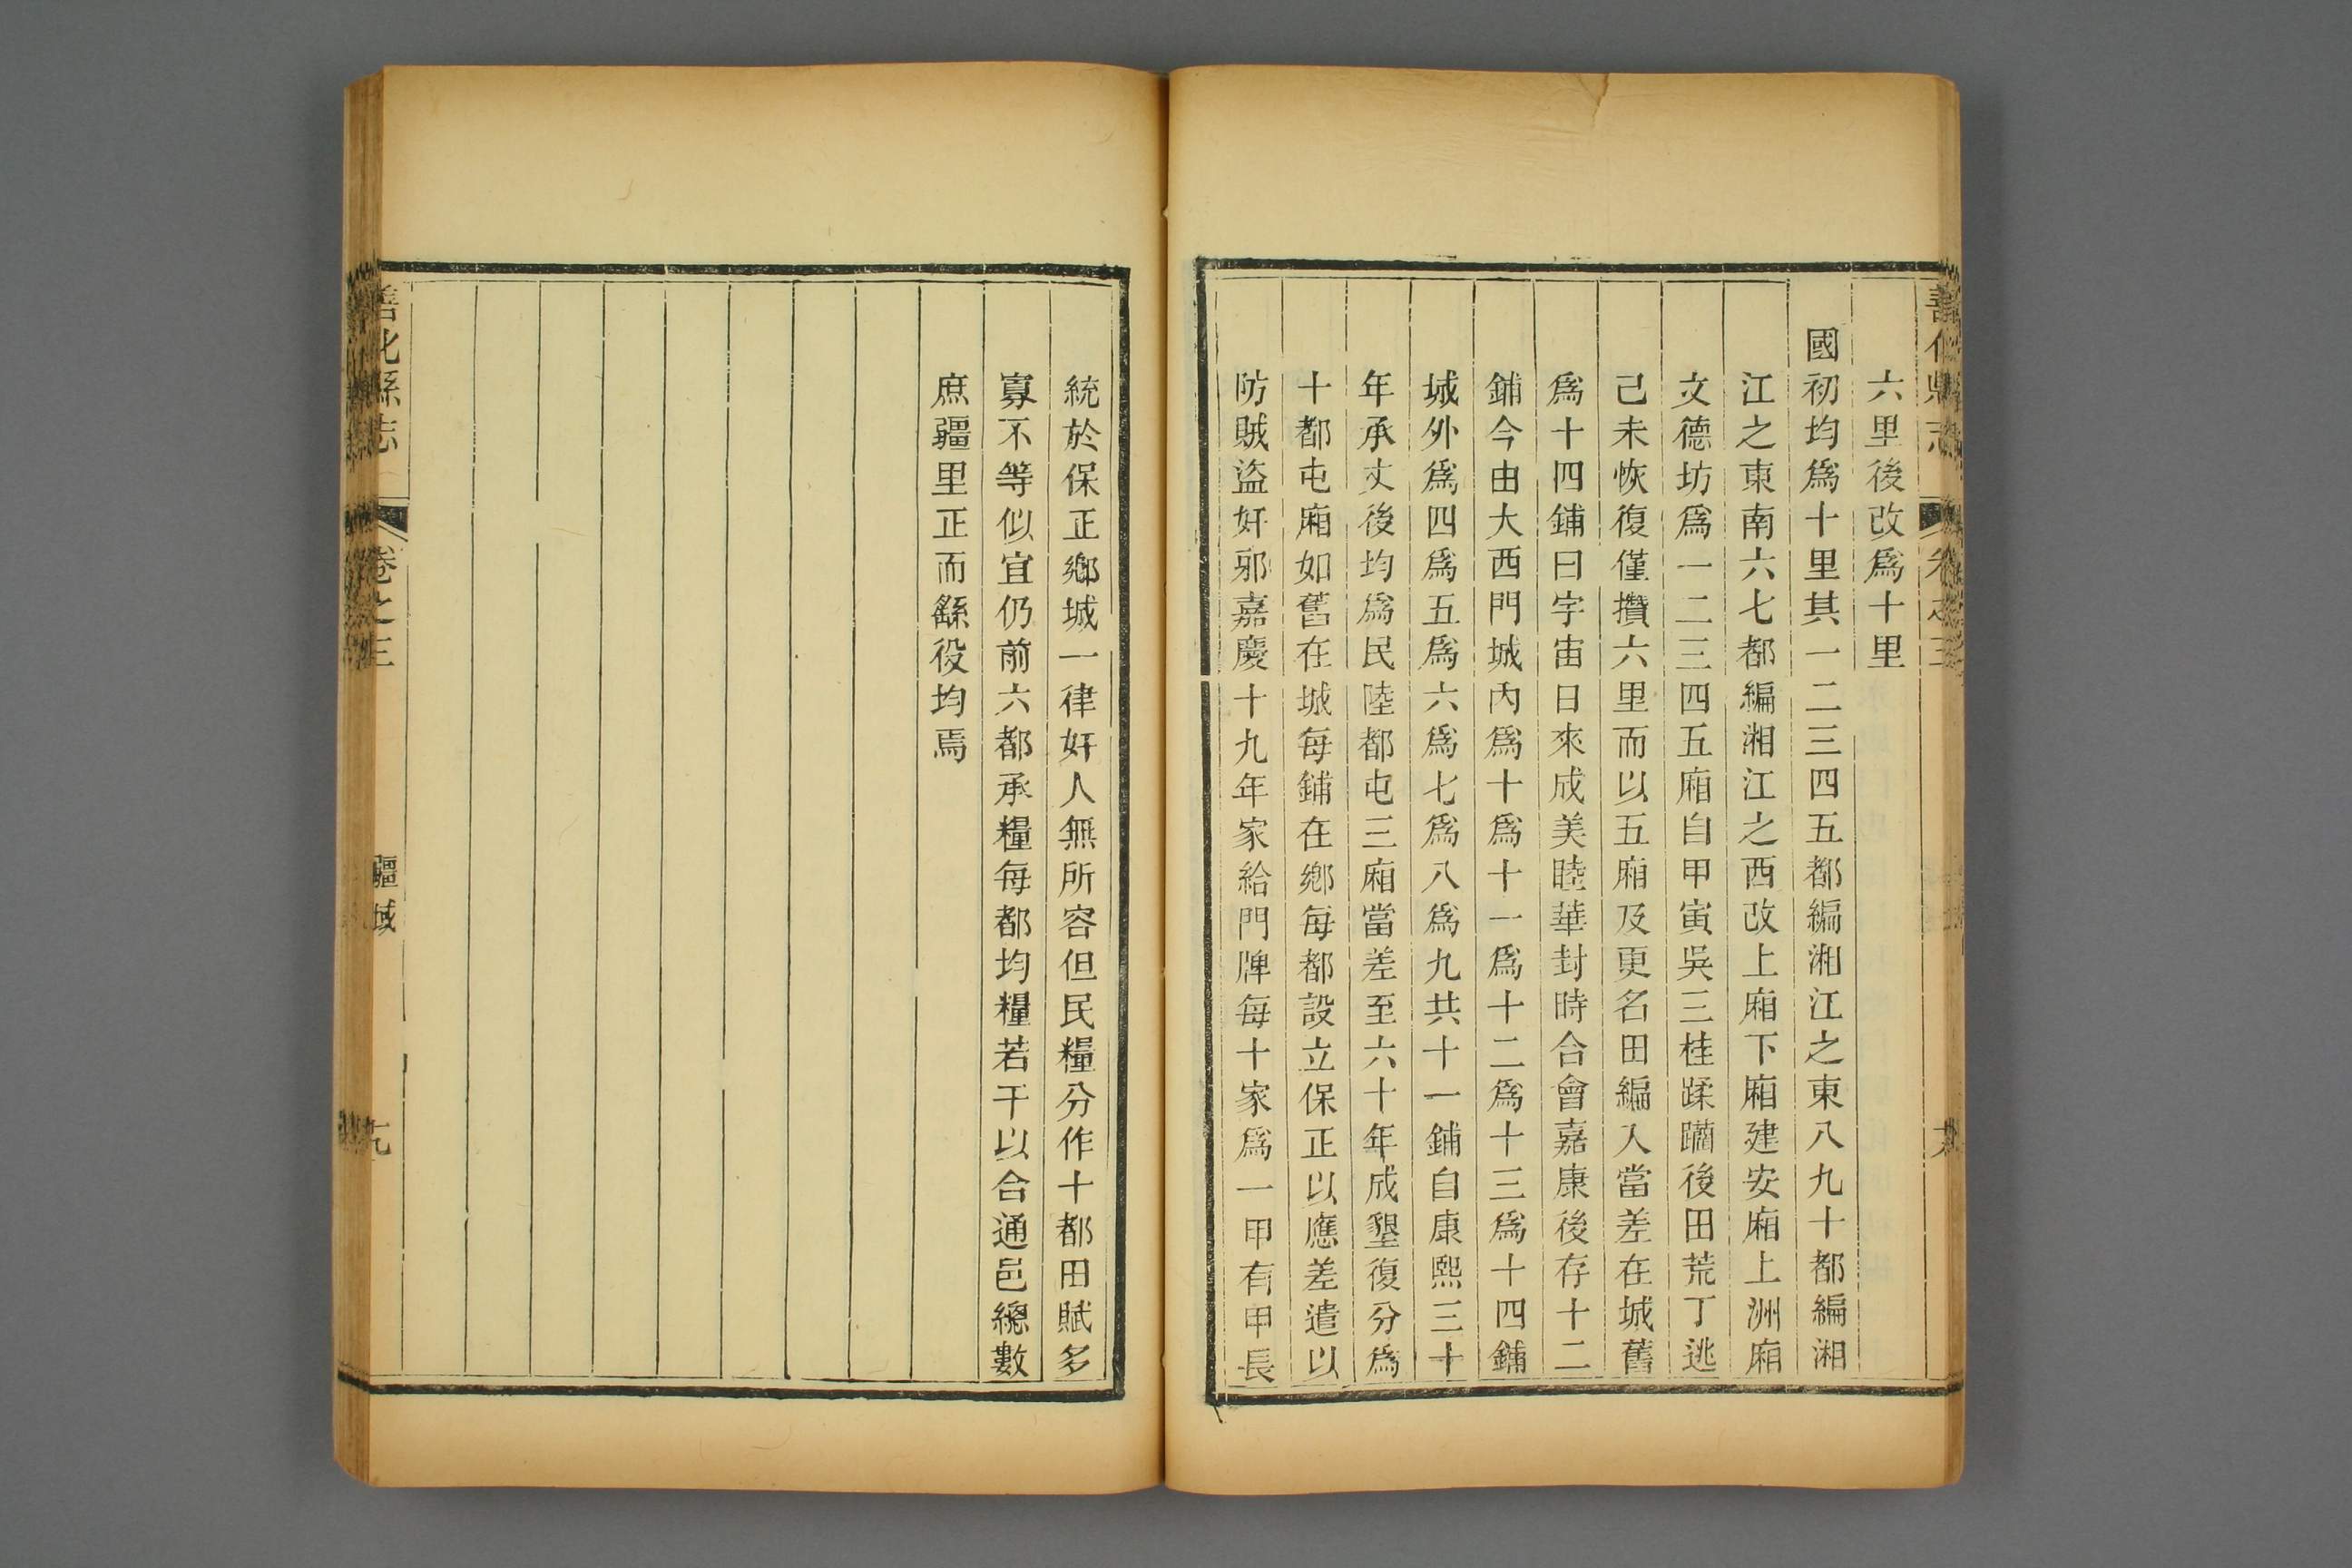 善化縣志
卷之三
六里後改爲十里
國初均爲十里其一二三四五都編湘江之東八九十都編湘
江之東南六七都編湘江之西改上廂下廂建安廂上洲廂
文德坊爲一二三四五廂自甲寅吳三桂蹂躪後田荒丁逃
己未恢復僅攢六里而以五廂及更名田編入當差在城舊
爲十四鋪曰宇宙日來成美睦華封時合會嘉康後存十二
鋪今由大西門城內爲十爲十一爲十二爲十三爲十四鋪
城外爲四爲五爲六爲七爲八爲九共十一鋪自康熙三十
年承丈後均爲民陸都屯三廂當差至六十年成墾復分爲
十都屯廂如舊在城每鋪在鄉每都設立保正以應差遣以
防賊盜奸邪嘉慶十九年家給門牌每十家爲一甲有甲長
統於保正鄉城一律奸人無所容但民糧分作十都田賦多
寡不等似宜仍前六都承糧每都均糧若干以合通邑總數
庶疆里正而繇役均焉
善化縣志
卷之三
疆域
九